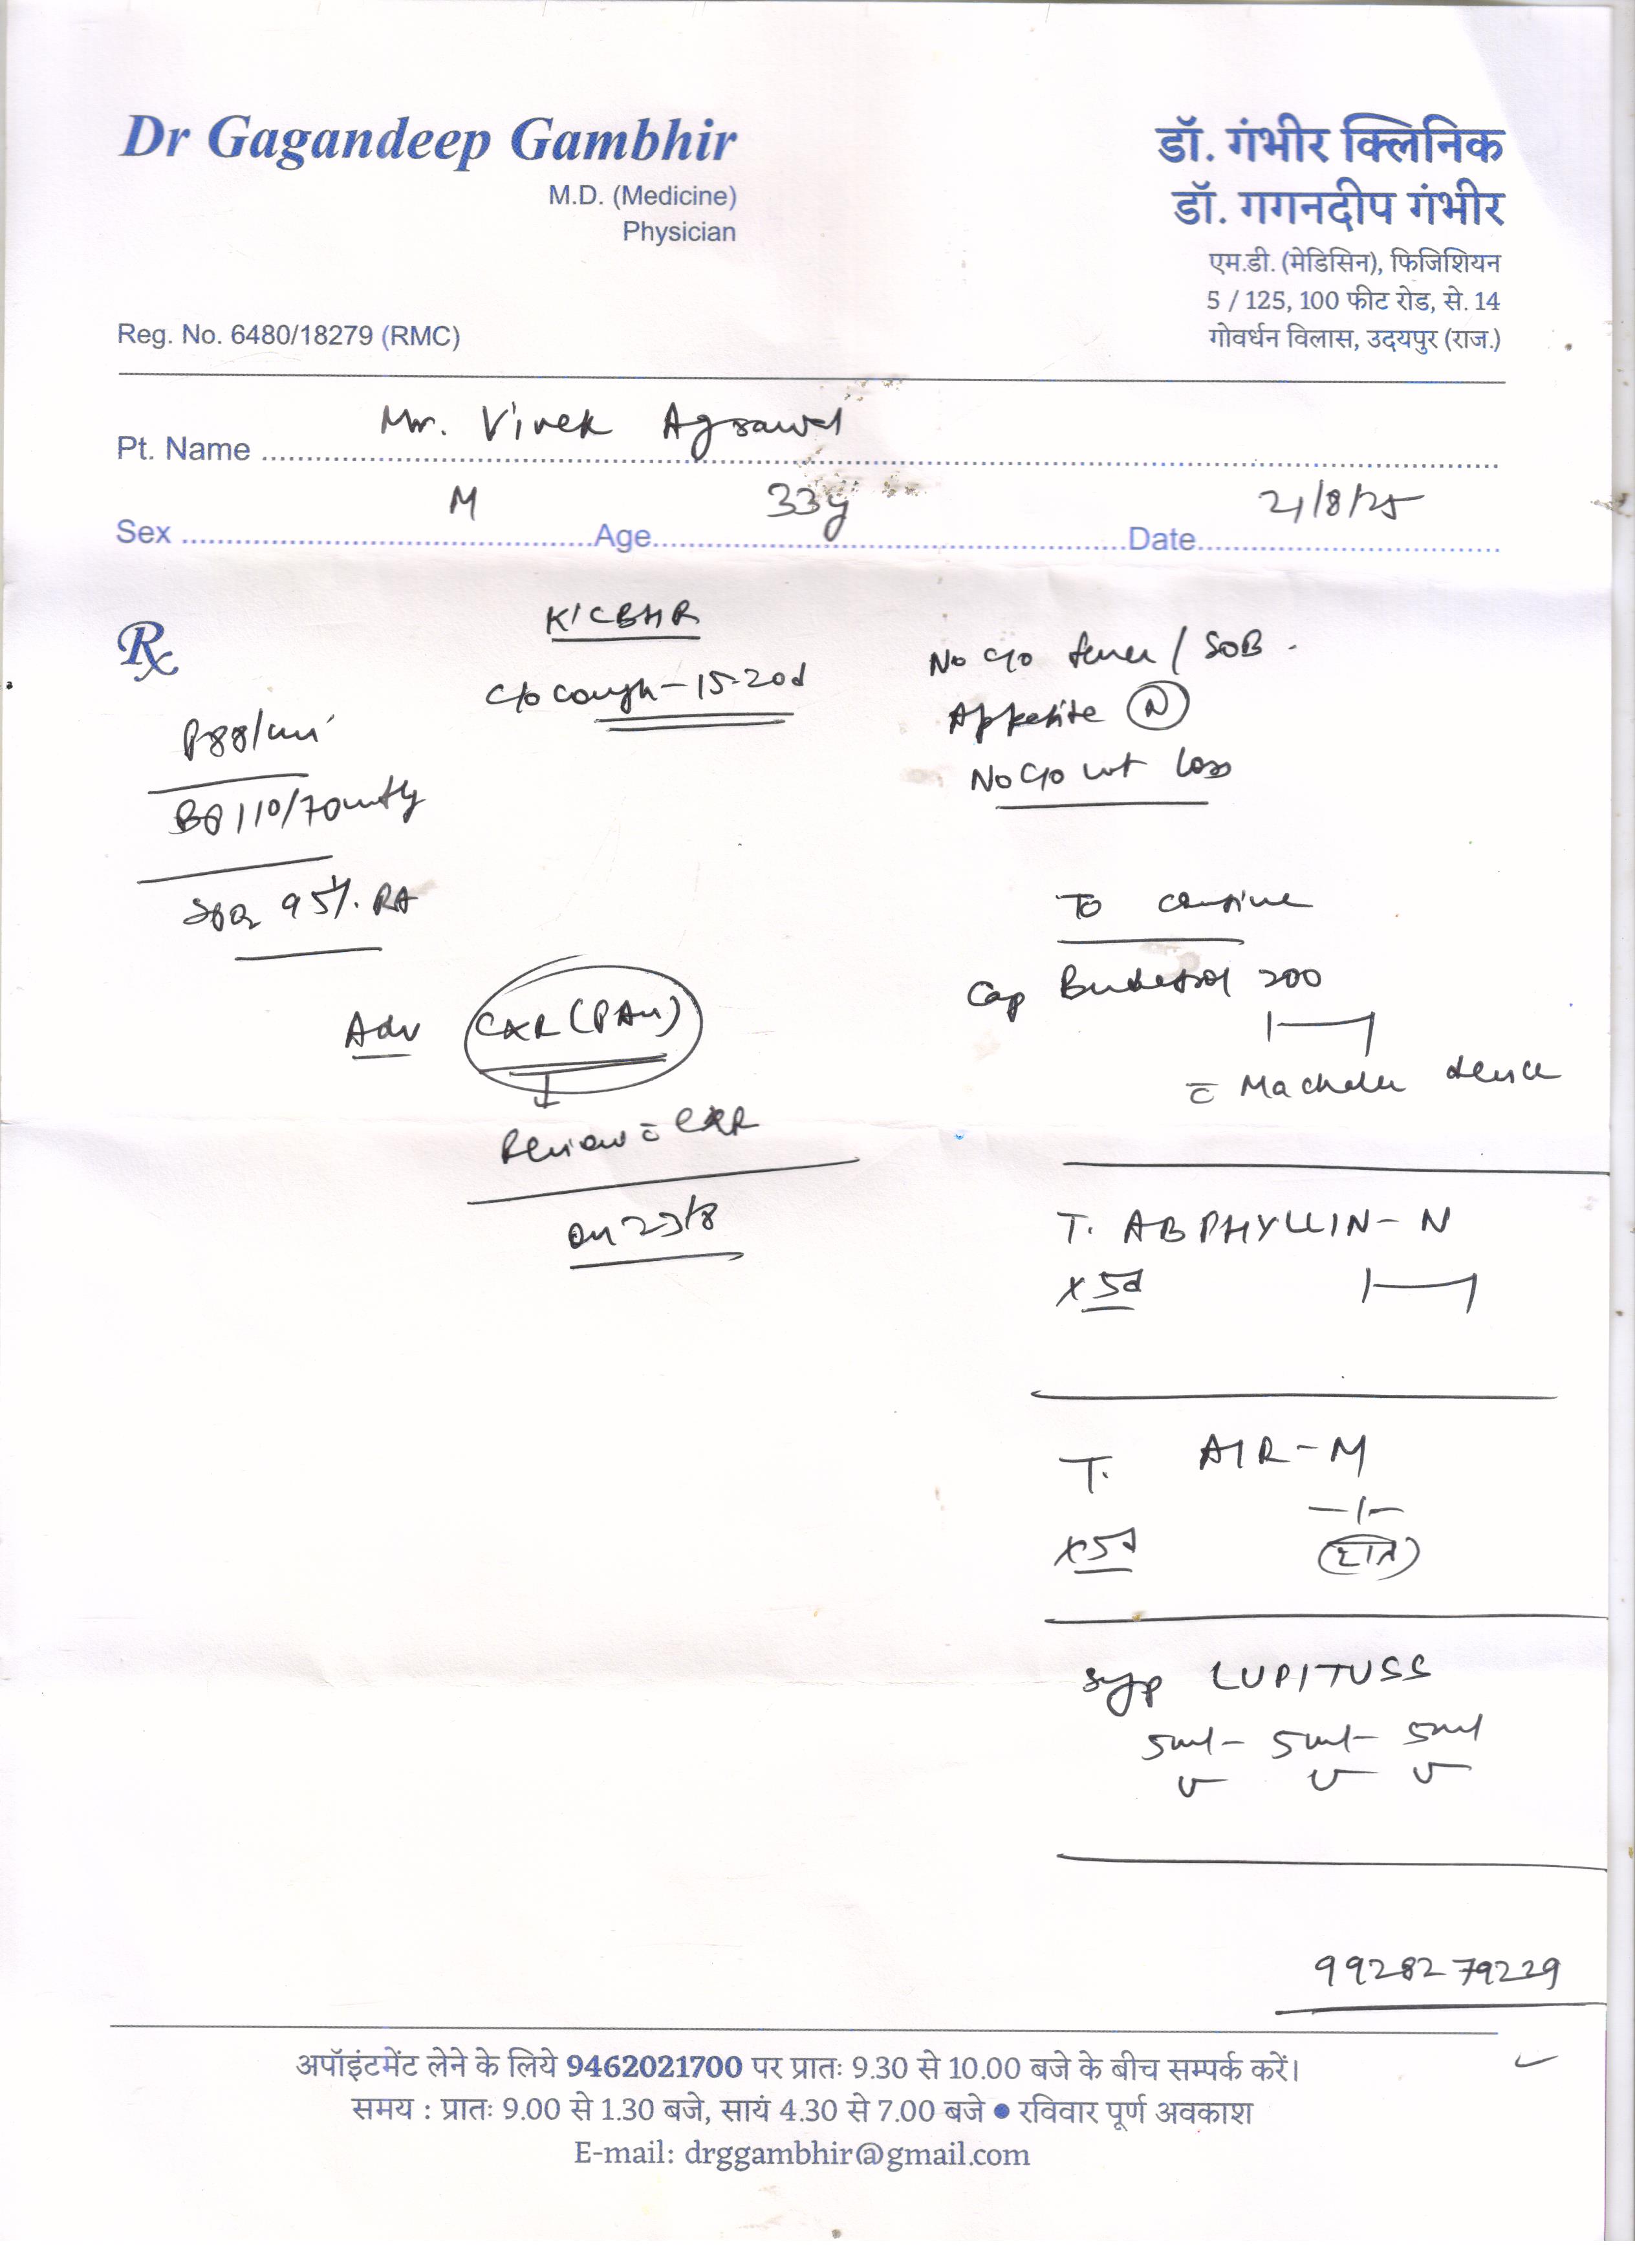 Dr Gagandeep Gambhir
M.D. (Medicine)
Physician
Reg. No. 6480/18279 (RMC)
डॉ. गंभीर क्लिनिक
डॉ. गगनदीप गंभीर
एम.डी. (मेडिसिन), फिजिशियन
5 / 125, 100 फीट रोड, से. 14
गोवर्धन विलास, उदयपुर (राज.)
Pt. Name Mr. Vivek Agrawal
Sex M Age 33y Date 21/8/25
Rx
P 88/min
BP 110/70 mmHg
SpO2 95% RA
K/C BHR
C/o Cough - 15-20d
No C/o fever / SOB.
Appetite (N)
No C/o wt loss
Adv CXR (PA)
Review c̄ CXR
on 23/8
To continue
Cap 200
1—1
c̄ device
T. ABPHYLLIN - N
x 5d 1—1
T. AIR - M
—1—
x 5d (रात)
Syp LUPITUSS
5ml - 5ml - 5ml
9928279229
अपॉइंटमेंट लेने के लिये 9462021700 पर प्रातः 9.30 से 10.00 बजे के बीच सम्पर्क करें।
समय : प्रातः 9.00 से 1.30 बजे, सायं 4.30 से 7.00 बजे ● रविवार पूर्ण अवकाश
E-mail: drggambhir@gmail.com